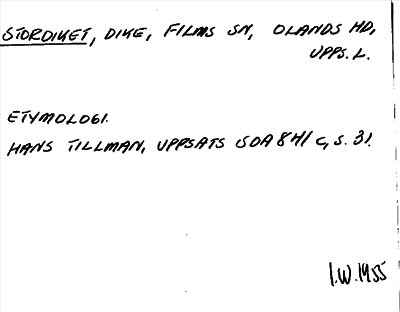 STORDIKET, DIKE, FILMS SN, OLANDS HD,
UPPS. L.
ETYMOLOGI.
HANS TILLMAN, UPPSATS SOA 841 C, S. 31.
I.W. 1955